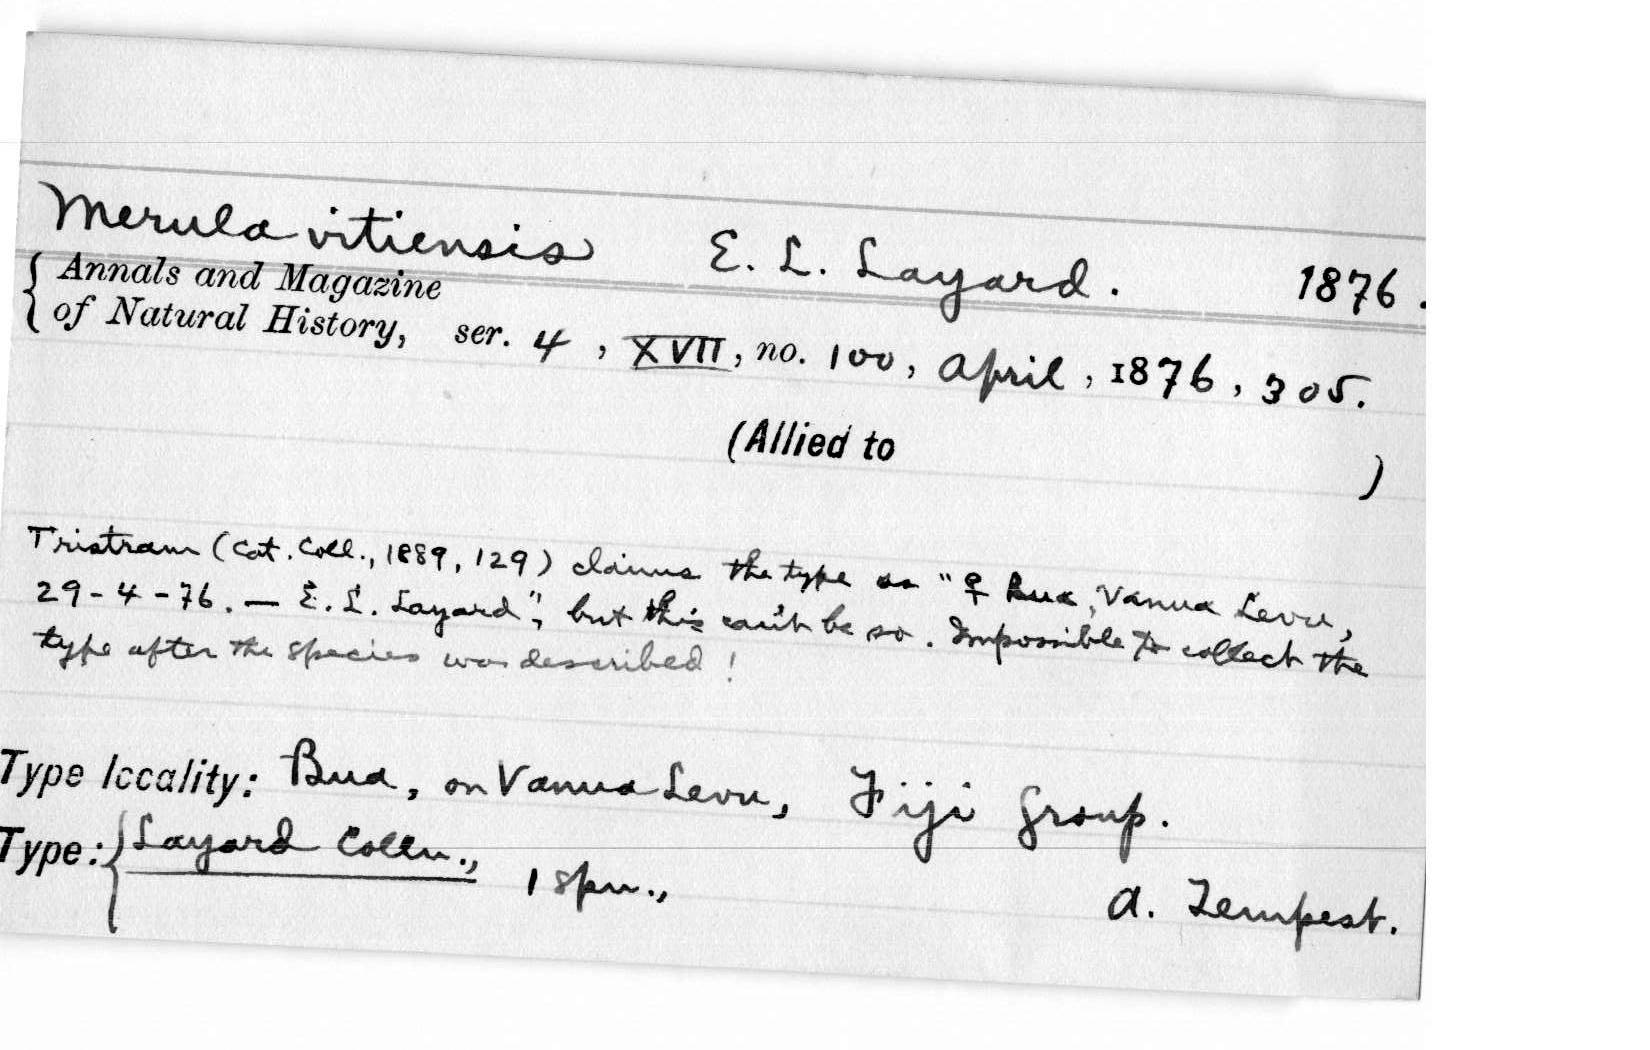 Merula vitiensis E. L. Layard. 1876.
{ Annals and Magazine
of Natural History, ser. 4, XVII, no. 100, April, 1876, 305.
(Allied to )
Tristram (Cat. Coll., 1889, 129) claims the type as "♀ Bua, Vanua Levu,
29-4-76. — E. L. Layard"; but this can't be so. Impossible to collect the
type after the species was described!
Type locality: Bua, on Vanua Levu, Fiji Group.
Type: { Layard Colln., 1 spn., A. Tempest.